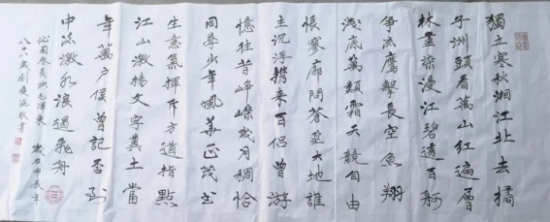 獨立寒秋湘江北去橘
子洲頭看萬山紅遍層
林盡染漫江碧透百舸
爭流鷹擊長空魚翔
淺底萬類霜天競自由
悵寥廓問蒼茫大地誰
主沉浮携來百侶曾游
憶往昔崢嶸歲月稠恰
同學少年風華正茂書
生意氣揮斥方遒指點
江山激揚文字糞土當
年萬戶侯曾記否到
中流激水浪遏飛舟
沁園春長沙
八十六叟劉